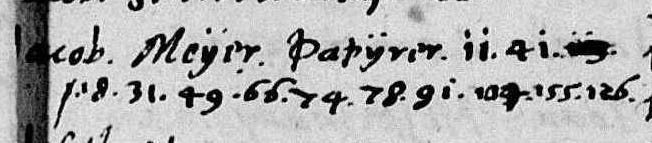 Jacob. Meÿer. Papÿrer. ii. 41.
18. 31. 49. 66. 74. 78. 91. 104. 155. 126.